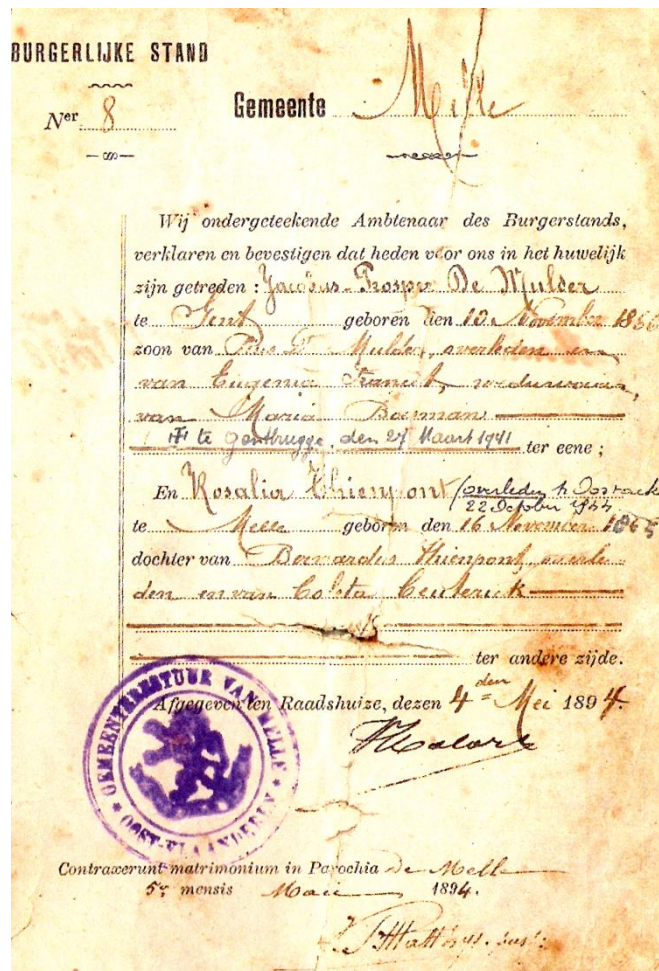 BURGERLIJKE STAND
Ner 8
Gemeente Melle
Wij ondergeteekende Ambtenaar des Burgerstands,
verklaren en bevestigen dat heden voor ons in het huwelijk
zijn getreden : Jacobus-Prosper De Mulder
te Gent geboren den 10 November 186
zoon van Mulder, overleden en
van Eugenia Franck, weduwnaar
van Maria Bosman
te Gentbrugge, den 27 Maart 1941 ter eene ;
En Rosalia Thienpont (overleden
22 October 1944
te Melle geboren den 16 November 186
dochter van Bernardus Thienpont, overle-
den en van Coleta Ceuterick
ter andere zijde.
Afgegeven ten Raadshuize, dezen 4den Mei 1894.
GEMEENTEBESTUUR VAN MELLE * OOST-VLAANDEREN *
Contraxerunt matrimonium in Parochia de Melle
5a mensis Maii 1894.